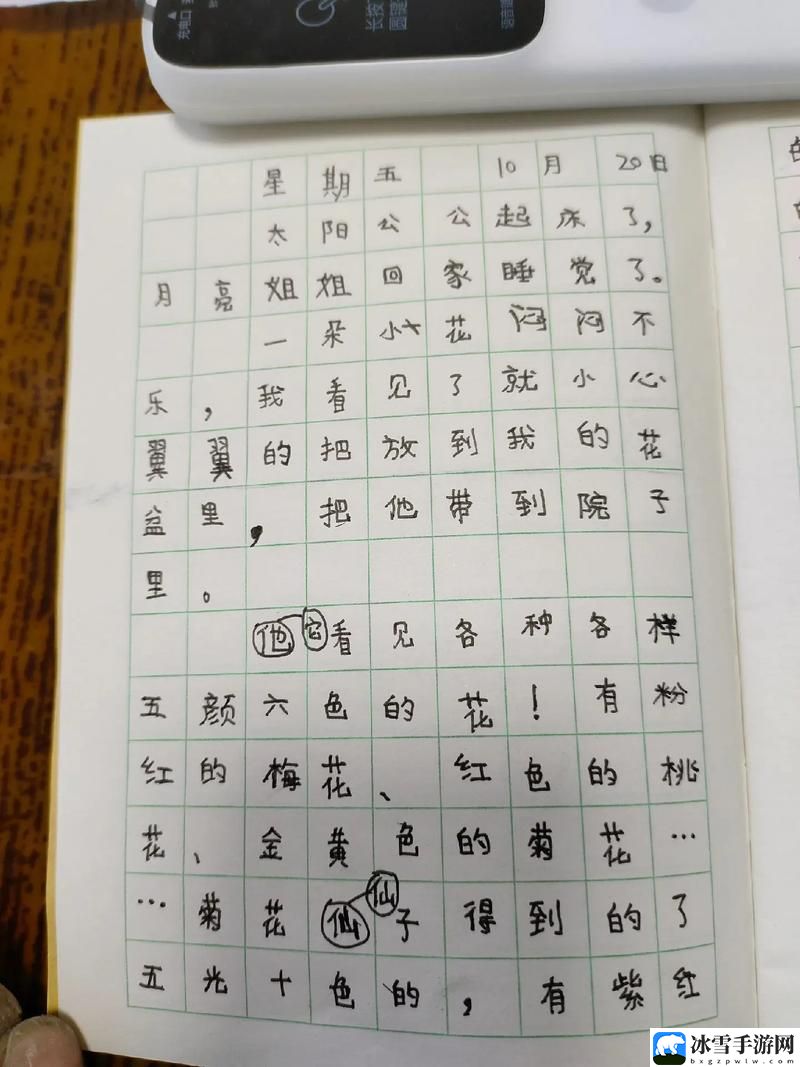 充电口
长按
星期五 10月20日
太阳公公起床了，
月亮姐姐回家睡觉了。
一朵小花闷闷不
乐，我看见了就小心
翼翼的把放到我的花
盆里，把他带到院子
里。
他它看见各种各样
五颜六色的花！有粉
红的梅花、红色的桃
花、金黄色的菊花…
…菊花仙仙子得到的了
五光十色的，有紫红
冰雪手游网
bxgzpwlw.com